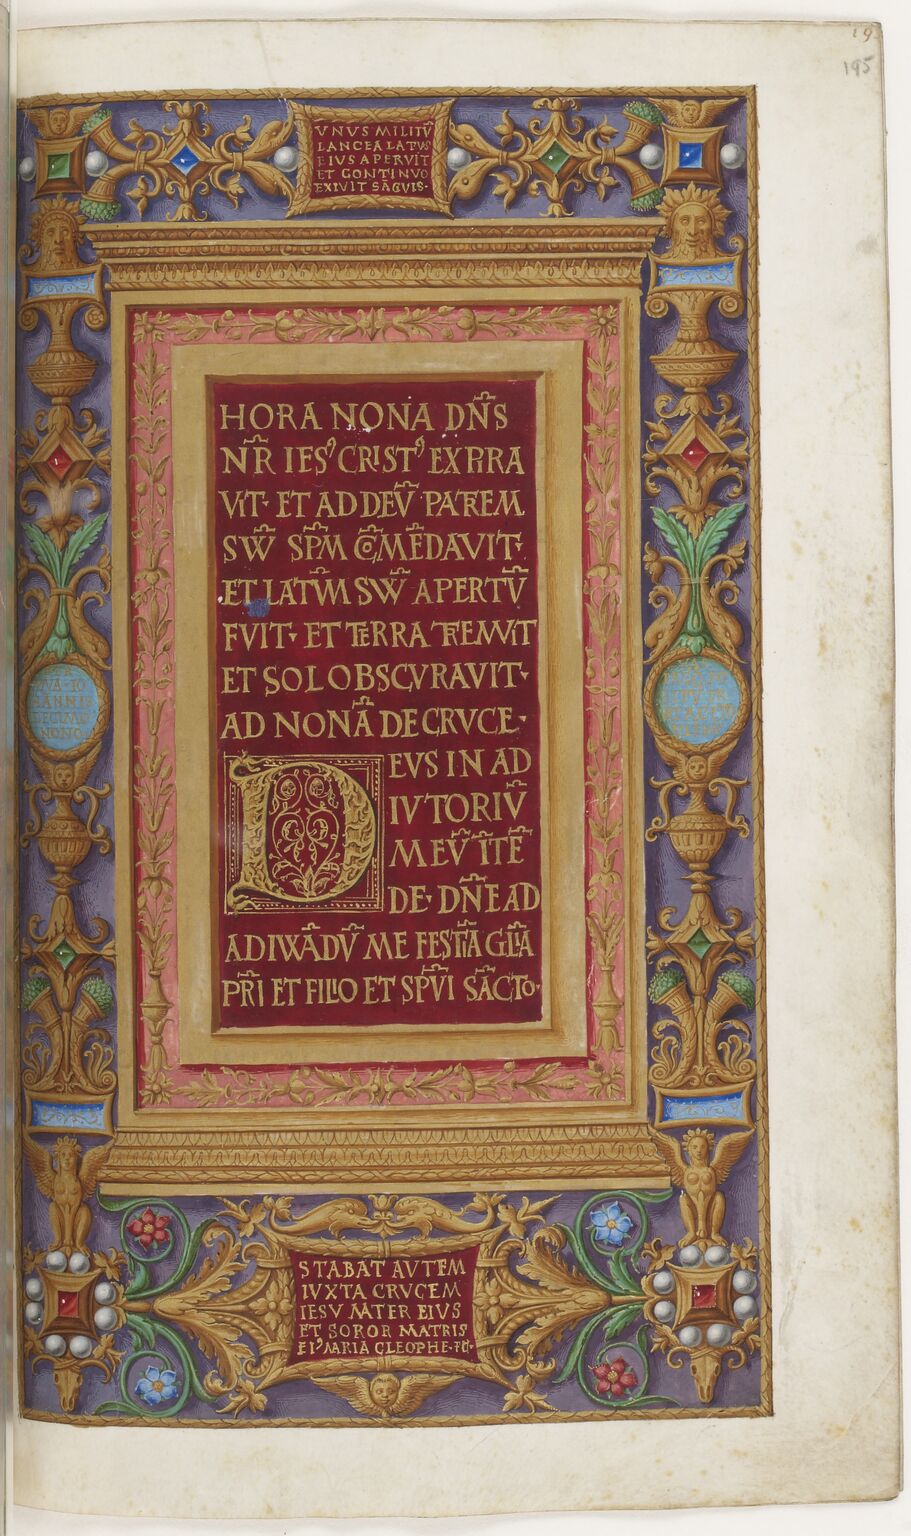 19
195
VNUS MILITŪ
LANCEA LATUS
EIUS APERVIT
ET CONTINVO
EXIVIT SĀGUIS·
HORA NONA DN̄S
NR̄ IESꝰ CRISTꝰ EXPIRA
VIT· ET AD DEV̄ PATREM
SVV̄ SPM̄ CŌMĒDAVIT·
ET LATVM SVV̄ APERTV̄
FVIT· ET TERRA TREMVIT
ET SOL OBSCVRAVIT·
AD NONĀ DE CRVCE·
DEVS IN AD
IVTORIV̄
MEV̄ ĪTĒ
DE· DN̄E AD
ADIVVĀDV̄ ME FESTĪA GLĪA
PR̄I ET FILIO ET SPV̄I SĀCTO·
IVA·IO
HANNIS
DECIMO
NONO
STABAT AVTEM
IVXTA CRVCEM
IESV MATER EIVS
ET SOROR MATRIS
EIꝰ MARIA CLEOPHE·